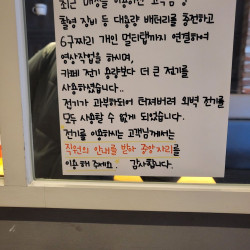 최근 매장을 이용하신 고객님 중
촬영 장비 등 대용량 배터리를 충전하고
6구짜리 개인 멀티탭까지 연결하여
영상작업을 하며,
카페 전기 용량보다 더 큰 전기를
사용하셨습니다..
전기가 과부하되어 터져버려 외벽 전기를
모두 사용할 수 없게 되었습니다.
전기를 이용하시는 고객님께서는
직원의 안내를 받아 중앙자리를
이용해 주세요! 감사합니다.